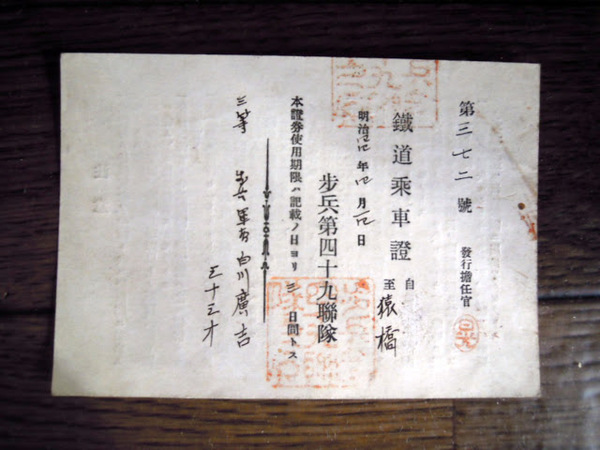 第三七二號
發行擔任官
鐵道乘車證
自
至 猿橋
明治四四年四月 日
步兵第四十九聯隊
本證券使用期限ハ記載ノ日ヨリ三日間トス
三等 步兵軍曹 白川廣吉
三十三才